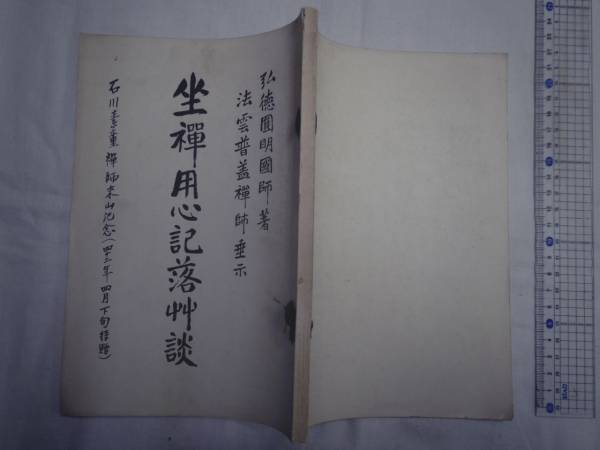 弘德圓明國師著
法雲普蓋禪師垂示
坐禪用心記落艸談
石川素童禪師来山記念(四十二年四月下旬拝贈)